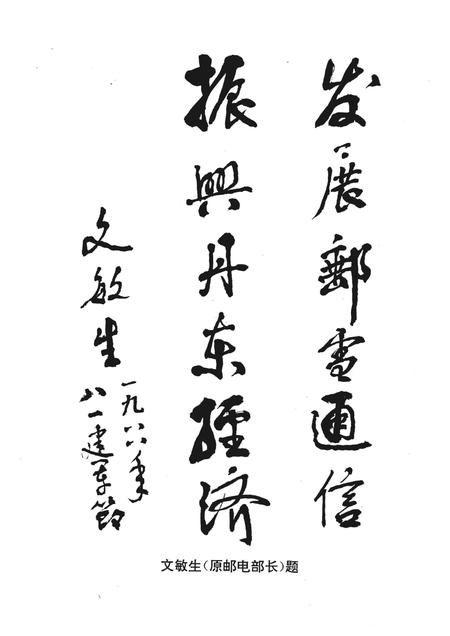 发展郵電通信
振興丹东經济
文敏生
一九八八年
八一建军節
文敏生(原邮电部长)题